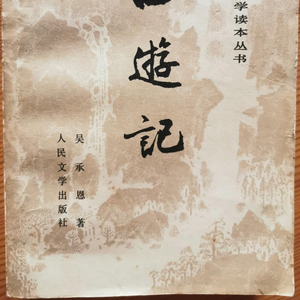 学读本丛书
西遊記
吴承恩著
人民文学出版社